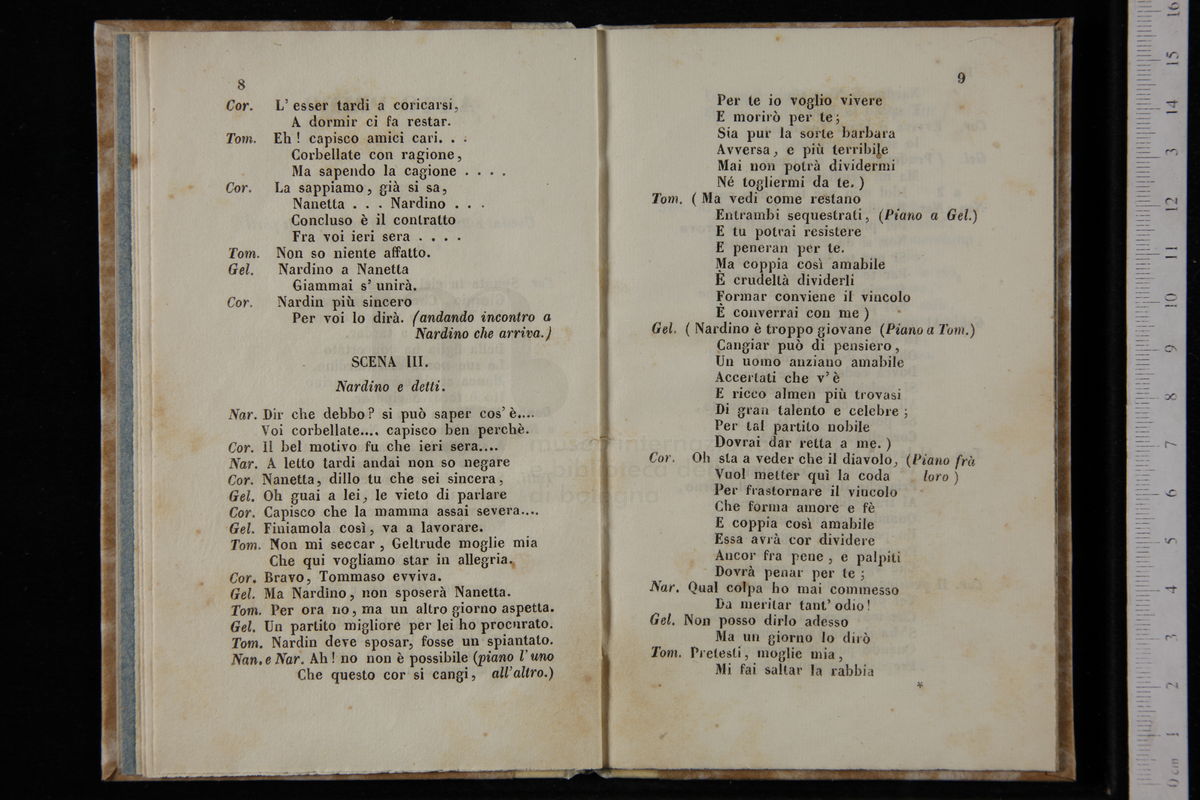 8
Cor. L' esser tardi a coricarsi,
A dormir ci fa restar.
Tom. Eh ! capisco amici cari. . .
Corbellate con ragione,
Ma sapendo la cagione . . . .
Cor. La sappiamo, già si sa,
Nanetta . . . Nardino . . .
Concluso è il contratto
Fra voi ieri sera . . . .
Tom. Non so niente affatto.
Gel. Nardino a Nanetta
Giammai s' unirà.
Cor. Nardin più sincero
Per voi lo dirà. (andando incontro a
Nardino che arriva.)
SCENA III.
Nardino e detti.
Nar. Dir che debbo? si può saper cos' è....
Voi corbellate.... capisco ben perchè.
Cor. Il bel motivo fu che ieri sera....
Nar. A letto tardi andai non so negare
Cor. Nanetta, dillo tu che sei sincera,
Gel. Oh guai a lei, le vieto di parlare
Cor. Capisco che la mamma assai severa....
Gel. Finiamola così, va a lavorare.
Tom. Non mi seccar, Geltrude moglie mia
Che qui vogliamo star in allegria.
Cor. Bravo, Tommaso evviva.
Gel. Ma Nardino, non sposerà Nanetta.
Tom. Per ora no, ma un altro giorno aspetta.
Gel. Un partito migliore per lei ho procurato.
Tom. Nardin deve sposar, fosse un spiantato.
Nan. e Nar. Ah ! no non è possibile (piano l'uno
Che questo cor si cangi, all'altro.)
9
Per te io voglio vivere
E morirò per te;
Sia pur la sorte barbara
Avversa, e più terribile
Mai non potrà dividermi
Né togliermi da te. )
Tom. ( Ma vedi come restano
Entrambi sequestrati, (Piano a Gel.)
E tu potrai resistere
E peneran per te.
Ma coppia così amabile
È crudeltà dividerli
Formar conviene il vincolo
È converrai con me )
Gel. ( Nardino è troppo giovane (Piano a Tom.)
Cangiar può di pensiero,
Un uomo anziano amabile
Accertati che v' è
E ricco almen più trovasi
Di gran talento e celebre ;
Per tal partito nobile
Dovrai dar retta a me. )
Cor. Oh sta a veder che il diavolo, (Piano frà
Vuol metter quì la coda loro )
Per frastornare il vincolo
Che forma amore e fè
E coppia così amabile
Essa avrà cor dividere
Ancor fra pene, e palpiti
Dovrà penar per te ;
Nar. Qual colpa ho mai commesso
Da meritar tant' odio!
Gel. Non posso dirlo adesso
Ma un giorno lo dirò
Tom. Pretesti, moglie mia,
Mi fai saltar la rabbia
*
museo internaz
e biblioteca de
di bologna
0 cm 1 2 3 4 5 6 7 8 9 10 11 12 13 14 15 16